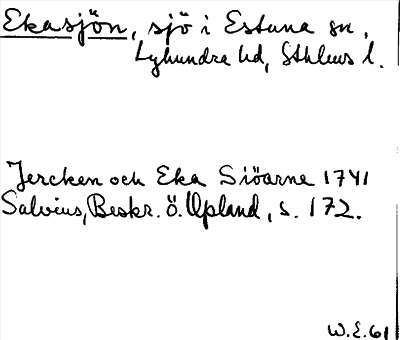 Ekasjön, sjö i Estuna sn,
Lyhundra hd, Sthlms l.
Jercken och Eka Siöarne 1741
Salvius, Beskr. ö. Upland, s. 172.
W.E. 61